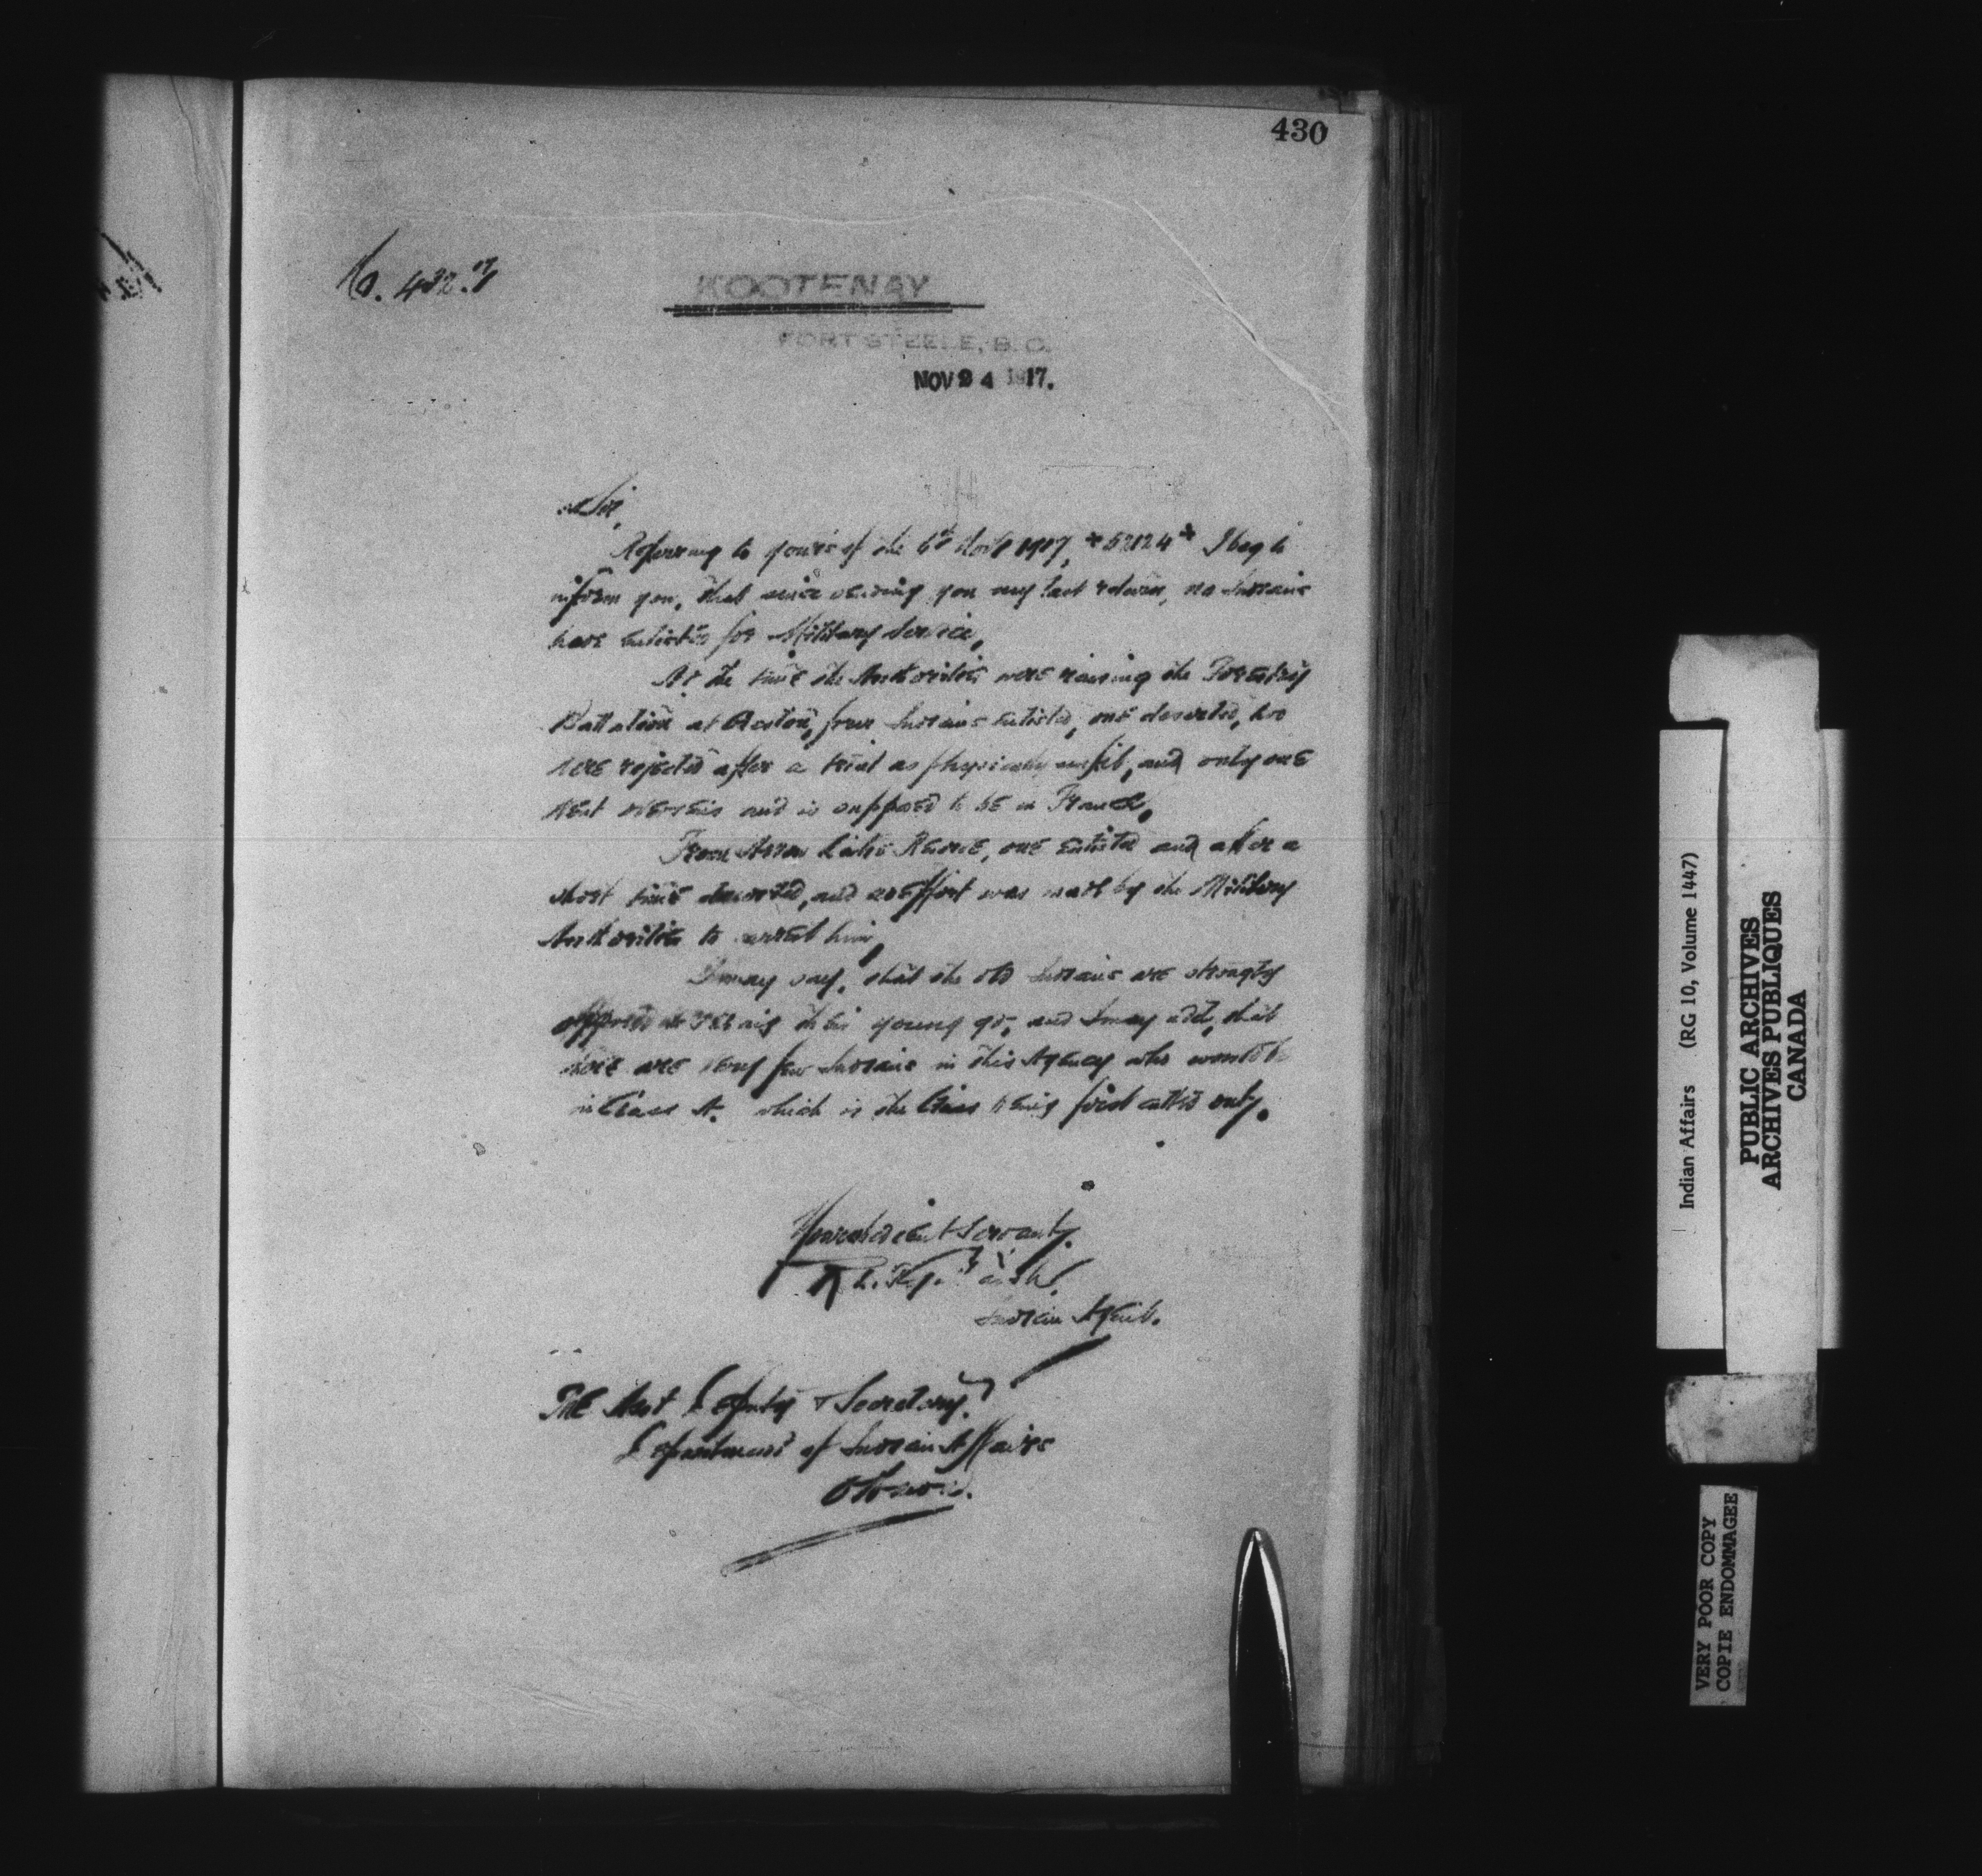 430
No. 432.17
KOOTENAY
FORT STEELE, B.C.
NOV 24 1917.
Sir,
Referring to yours of the 6th Novr 1917, *52124* I beg to
inform you, that since sending you my last return, no Indians
have enlisted for Military Service.
At the time the Authorities were raising the Forestry
Battalion at Creston, four Indians enlisted, one deserted, two
were rejected after a trial as physically unfit, and only one
went overseas and is supposed to be in France.
From Arrow Lakes Reserve, one enlisted and after a
short time deserted, and no effort was made by the Military
Authorities to arrest him.
I may say, that the old Indians are strongly
opposed to young go, and I may add, that
there are very few Indians in this Agency who would be
in Class A. which is the Class being first called only.
Your obedient Servant,
Indian Agent.
The Asst Deputy & Secretary,
Department of Indian Affairs
Ottawa.
Indian Affairs (RG 10, Volume 1447)
PUBLIC ARCHIVES
ARCHIVES PUBLIQUES
CANADA
VERY POOR COPY
COPIE ENDOMMAGEE